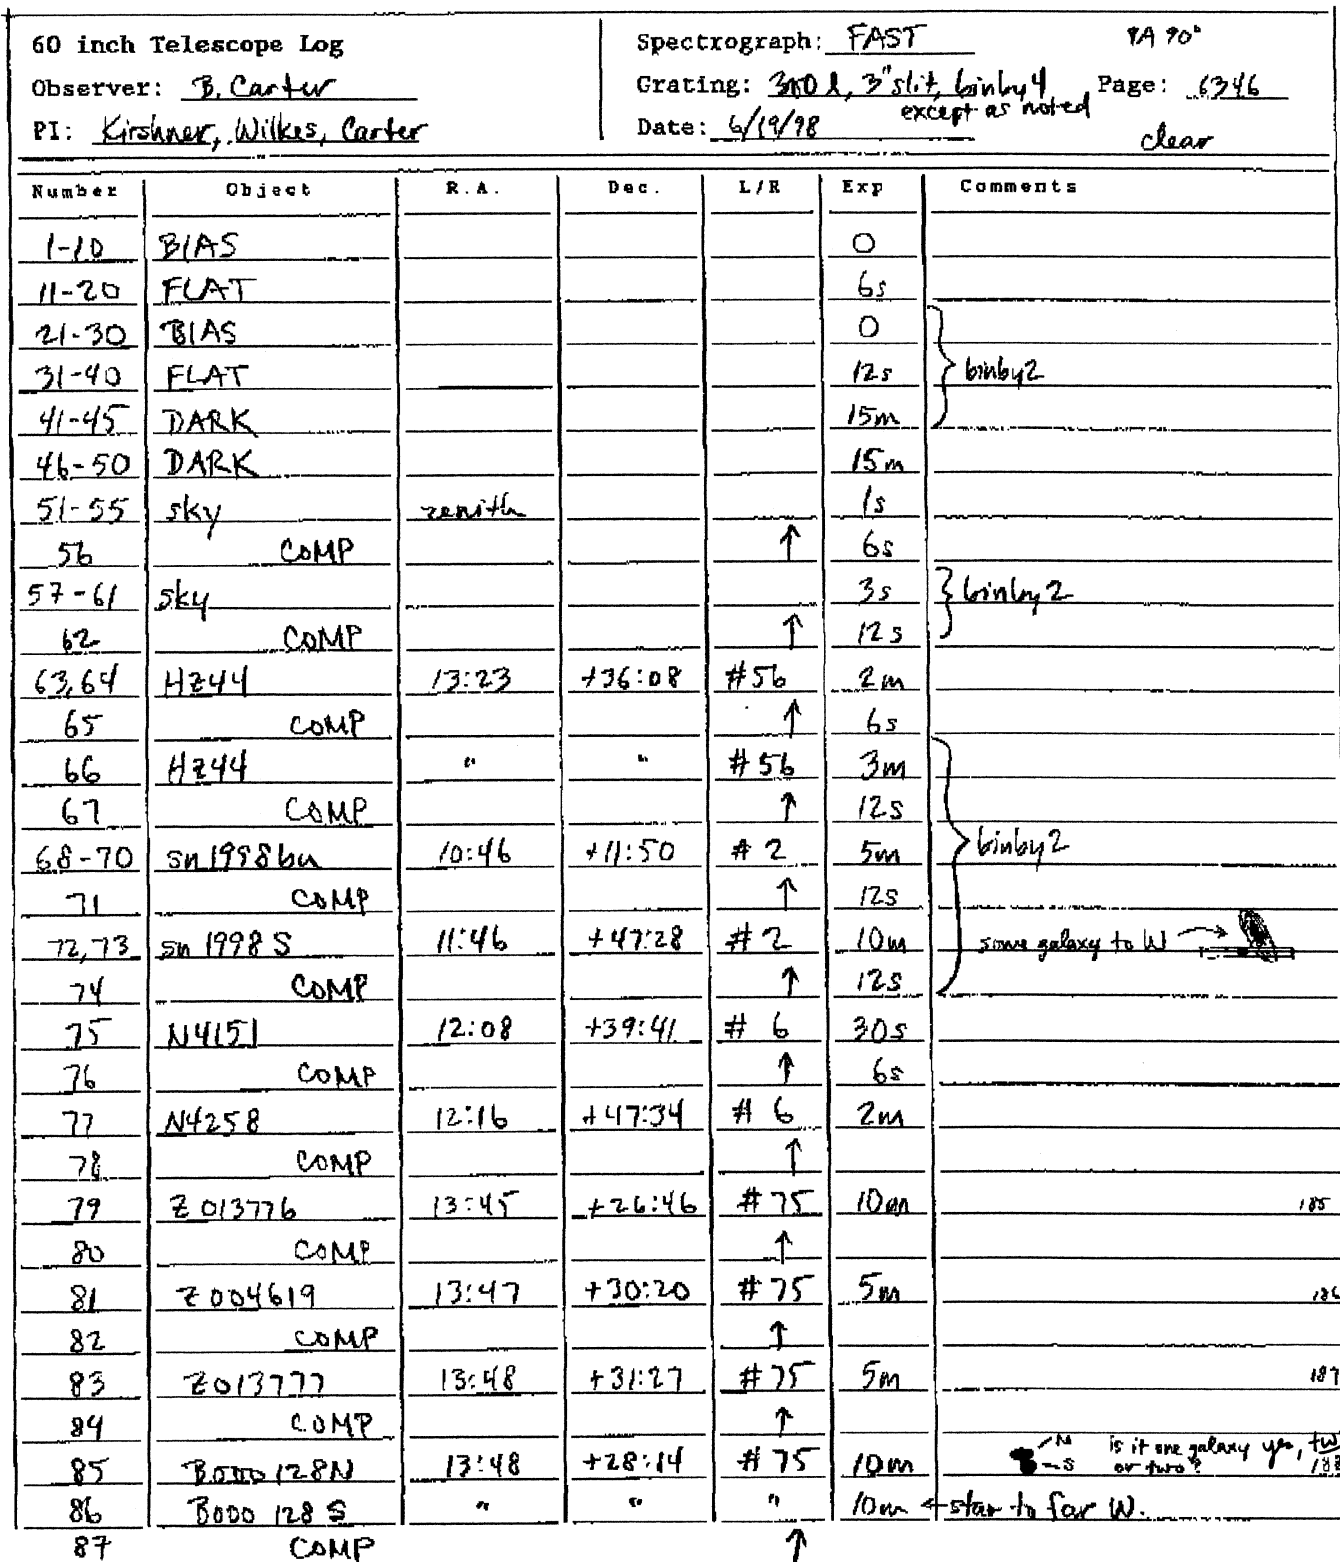 60 inch Telescope Log
Observer: B. Carter
PI: Kirshner, Wilkes, Carter
Spectrograph: FAST PA 90°
Grating: 300 l, 3" slit, binby 4 Page: 6346
except as noted
Date: 6/19/98 clear
Number Object R.A. Dec. L/R Exp Comments
1-10 BIAS 0
11-20 FLAT 6s
21-30 BIAS 0
31-40 FLAT 12s binby2
41-45 DARK 15m
46-50 DARK 15m
51-55 sky zenith 1s
56 COMP ↑ 6s
57-61 sky 3s binby2
62 COMP ↑ 12s
63,64 HZ44 13:23 +36:08 #56 2m
65 COMP ↑ 6s
66 HZ44 " " #56 3m
67 COMP ↑ 12s
68-70 sn1998bu 10:46 +11:50 #2 5m binby2
71 COMP ↑ 12s
72,73 sn 1998S 11:46 +47:28 #2 10m some galaxy to W →
74 COMP ↑ 12s
75 N4151 12:08 +39:41 #6 30s
76 COMP ↑ 6s
77 N4258 12:16 +47:34 #6 2m
78 COMP ↑
79 Z013776 13:45 +26:46 #75 10m 185
80 COMP ↑
81 Z004619 13:47 +30:20 #75 5m 186
82 COMP ↑
83 Z013777 13:48 +31:27 #75 5m 187
84 COMP ↑
85 B000128N 13:48 +28:14 #75 10m N S is it one galaxy or two? yes, 188
86 B000128S " " " 10m ← star to far W.
87 COMP ↑